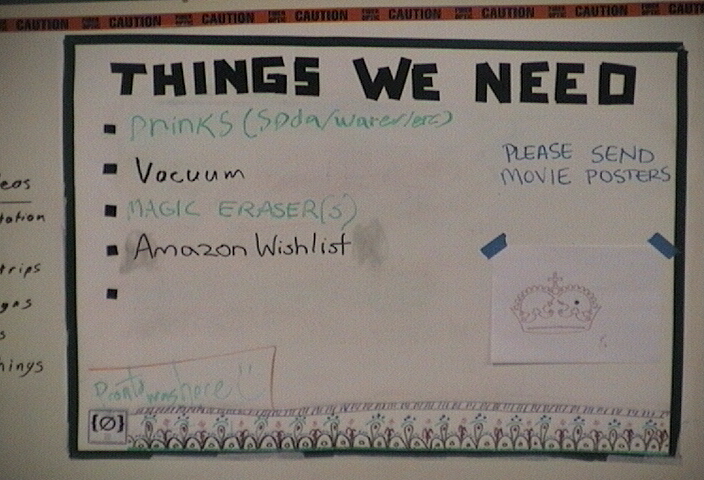 CAUTION CAUTION CAUTION CAUTION CAUTION CAUTION CAUTION
THINGS WE NEED
Drinks (Soda/water/etc)
Vacuum
MAGIC ERASER(S)
Amazon Wishlist
PLEASE SEND
MOVIE POSTERS
was here!
{Ø}
eos
tation
trips
ges
s
hings